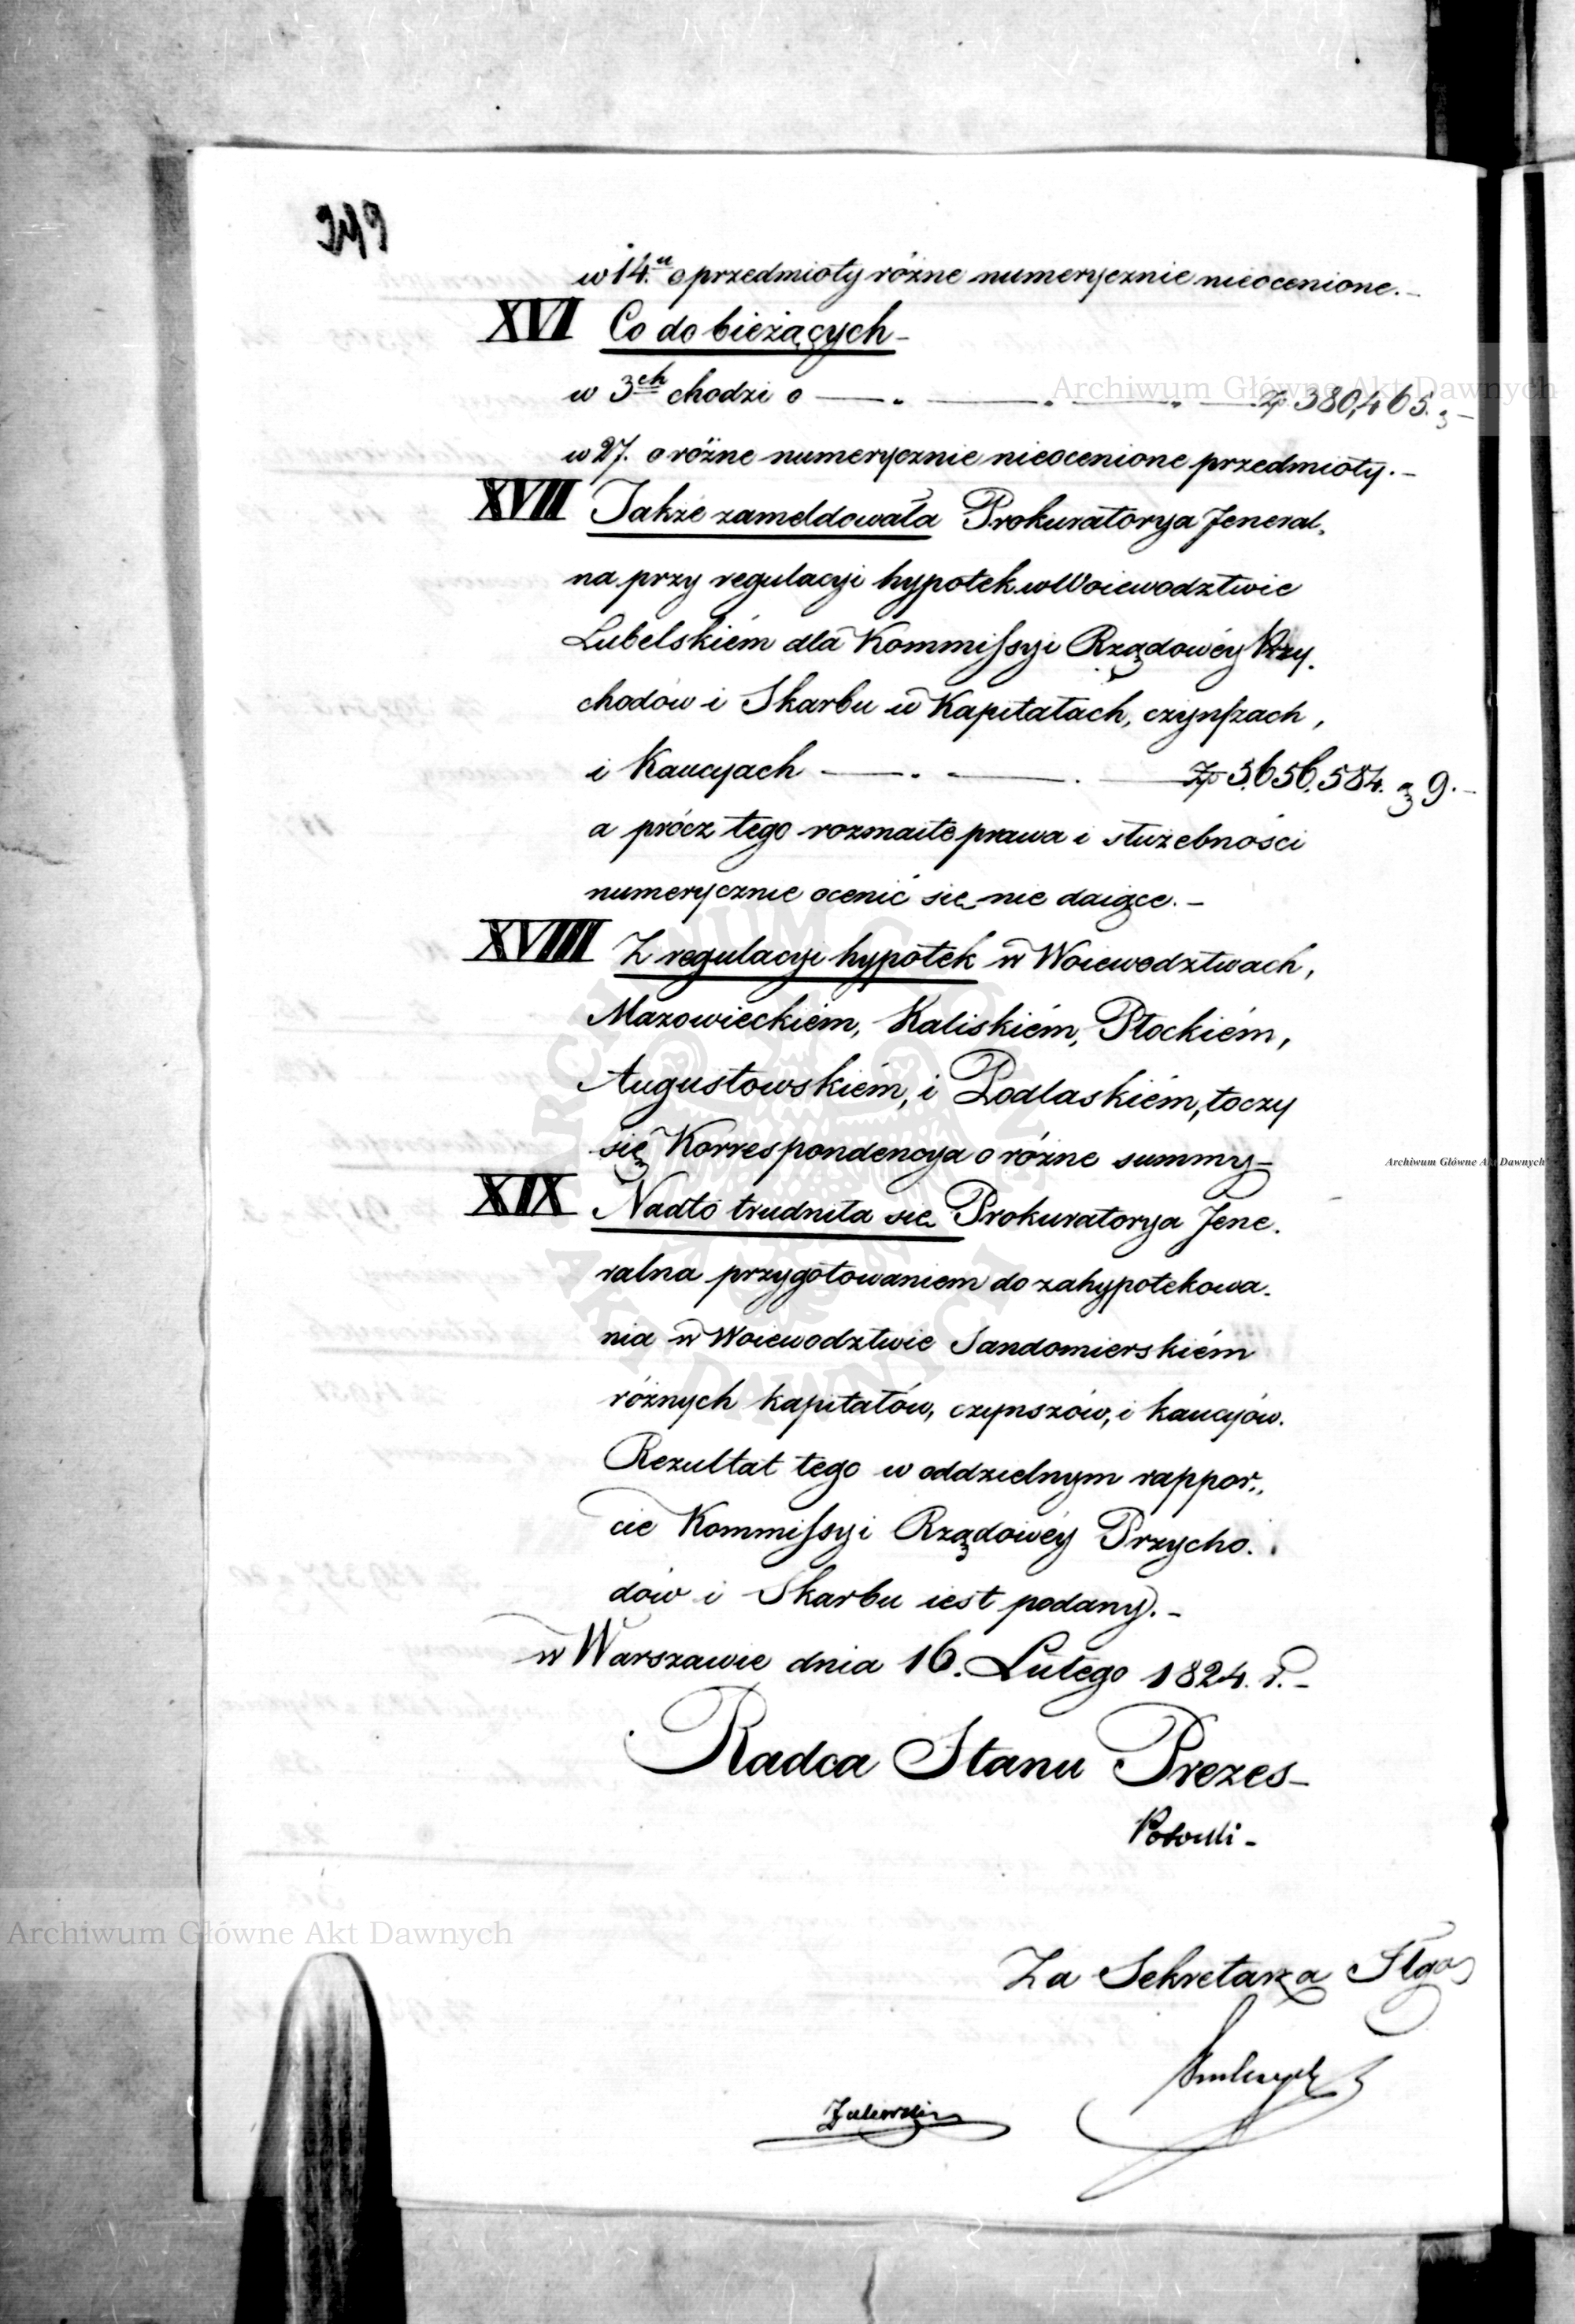 249
w 14.u o przedmioty różne numerycznie nieocenione.—
XVI Co do bieżących—
w 3ch chodzi o — . — . — . — Zp 380,465.
w 27. o różne numerycznie nieocenione przedmioty.—
XVII Także zameldowała Prokuratorya Jeneral-
na przy regulacyi hypotek w Woiewodztwie
Lubelskiém dla Kommissyi Rządowéy Przy-
chodów i Skarbu w Kapitałach, czynszach,
i Kaucyach — . — . — Zp 5,656,584. g 9.—
a prócz tego rozmaite prawa i służebności
numerycznie ocenić się nie daiące.—
XVIIII Z regulacyi hypotek w Woiewodztwach,
Mazowieckiém, Kaliskiém, Płockiém,
Augustowskiém, i Podlaskiém, toczy
się Korrespondencya o różne summy—
XIX Nadto trudniła się Prokuratorya Jene-
ralna przygotowaniem do zahypotekowa-
nia w Woiewodztwie Sandomierskiém
różnych kapitałów, czynszów, i kaucyów.
Rezultat tego w oddzielnym rappor-
cie Kommissyi Rządowéy Przycho-
dów i Skarbu iest podany.—
w Warszawie dnia 16. Lutego 1824. r.—
Radca Stanu Prezes—
Za Sekretarza Jlgo
Zalewski
Archiwum Główne Akt Dawnych
Archiwum Główne Akt Dawnych
Archiwum Główne Akt Dawnych
ARCHIWUM GŁÓWNE
AKT DAWNYCH